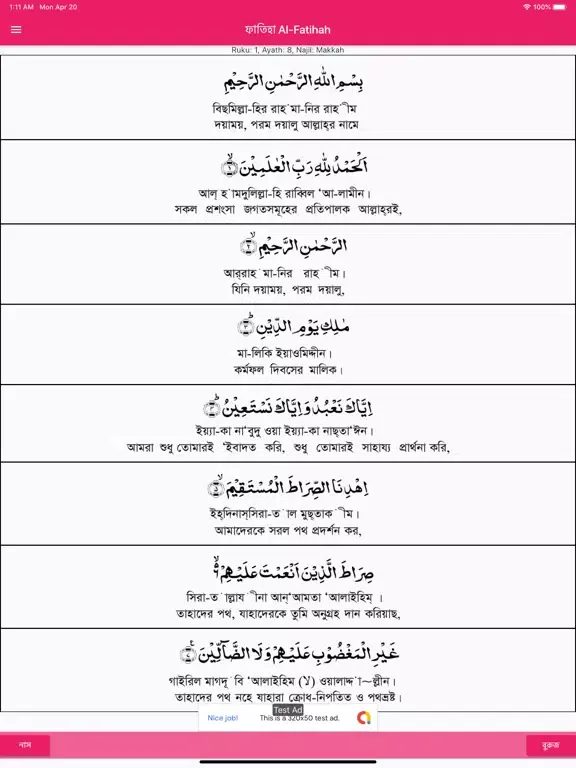 1:11 AM Mon Apr 20
100%
ফাতিহা Al-Fatihah
Ruku: 1, Ayath: 8, Najil: Makkah
بِسْمِ اللّٰهِ الرَّحْمٰنِ الرَّحِيْمِ
বিছমিল্লা-হির রাহ়মা-নির রাহ়ীম
দয়াময়, পরম দয়ালু আল্লাহ্‌র নামে
اَلْحَمْدُ لِلّٰهِ رَبِّ الْعٰلَمِيْنَ ۙ‏﴿۱﴾
আল্ হ়ামদুলিল্লা-হি রাব্বিল ‘আ-লামীন।
সকল প্রশংসা জগতসমূহের প্রতিপালক আল্লাহ্‌রই,
الرَّحْمٰنِ الرَّحِيْمِ ۙ‏﴿۲﴾
আর্‌রাহ়মা-নির রাহ়ীম।
যিনি দয়াময়, পরম দয়ালু,
مٰلِكِ يَوْمِ الدِّيْنِ ؕ‏﴿۳﴾
মা-লিকি ইয়াওমিদ্দীন।
কর্মফল দিবসের মালিক।
اِيَّاكَ نَعْبُدُ وَاِيَّاكَ نَسْتَعِيْنُ ؕ‏﴿۴﴾
ইয়্যা-কা না‘বুদু ওয়া ইয়্যা-কা নাছ্‌তা‘ঈন।
আমরা শুধু তোমারই ‘ইবাদত করি, শুধু তোমারই সাহায্য প্রার্থনা করি,
اِهْدِنَا الصِّرَاطَ الْمُسْتَقِيْمَ ۙ‏﴿۵﴾
ইহ্‌দিনাস্‌সিরা-ত়াল মুছ্‌তাক়ীম।
আমাদেরকে সরল পথ প্রদর্শন কর,
صِرَاطَ الَّذِيْنَ اَنْعَمْتَ عَلَيْهِمْ ۙ۶
সিরা-ত়াল্লায়ীনা আন্‘আমতা ‘আলাইহিম্ ।
তাহাদের পথ, যাহাদেরকে তুমি অনুগ্রহ দান করিয়াছ,
غَيْرِ الْمَغْضُوْبِ عَلَيْهِمْ وَلَا الضَّآلِّيْنَ ‏﴿۷﴾
গাইরিল মাগদূ়বি ‘আলাইহিম (لا) ওয়ালাদ্দ়া~ল্লীন।
তাহাদের পথ নহে যাহারা ক্রোধ-নিপতিত ও পথভ্রষ্ট।
Test Ad
Nice job!
This is a 320x50 test ad.
নাস
বুরুজ